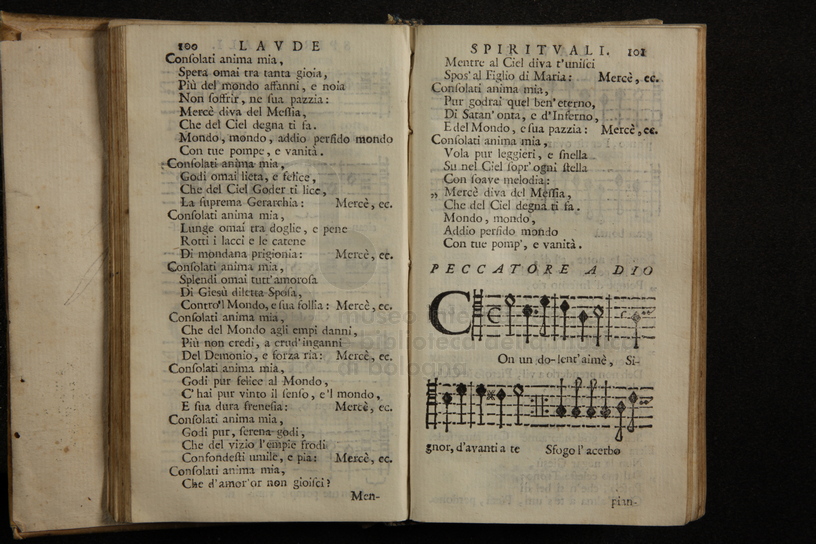 100 LAVDE
Conſolati anima mia,
Spera omai tra tanta gioia,
Più del mondo affanni, e noia
Non ſoffrir, ne ſua pazzia:
Mercè diva del Meſſia,
Che del Ciel degna ti fa.
Mondo, mondo, addio perfido mondo
Con tue pompe, e vanità.
Conſolati anima mia,
Godi omai lieta, e felice,
Che del Ciel Goder ti lice,
La ſuprema Gerarchia: Mercè, ec.
Conſolati anima mia,
Lunge omai tra doglie, e pene
Rotti i lacci e le catene
Di mondana prigionia: Mercè, ec.
Conſolati anima mia,
Splendi omai tutt'amoroſa
Di Gieſù diletta Spoſa,
Contro'l Mondo, e ſua follia: Mercè, ec.
Conſolati anima mia,
Che del Mondo agli empi danni,
Più non credi, a crud'inganni
Del Demonio, e forza ria: Mercè, ec.
Conſolati anima mia,
Godi pur felice al Mondo,
C'hai pur vinto il ſenſo, e'l mondo,
E ſua dura freneſia: Mercè, ec.
Conſolati anima mia,
Godi pur, ſerena godi,
Che del vizio l'empie frodi
Confondeſti umile, e pia: Mercè, ec.
Conſolati anima mia,
Che d'amor'or non gioiſci?
Men-
SPIRITVALI. 101
Mentre al Ciel diva t'uniſci
Spos'al Figlio di Maria: Mercè, ec.
Conſolati anima mia,
Pur godrai quel ben'eterno,
Di Satan'onta, e d'Inferno,
E del Mondo, e ſua pazzia: Mercè, ec.
Conſolati anima mia,
Vola pur leggieri, e ſnella
Su nel Ciel ſopr'ogni ſtella
Con ſoave melodia:
„ Mercè diva del Meſſia,
Che del Ciel degna ti fa.
Mondo, mondo,
Addio perfido mondo
Con tue pomp', e vanità.
PECCATORE A DIO
C
On un do-lent'aimè, Si-
gnor, d'avanti a te Sfogo l'acerbo
pian-
museo
biblioteca della
di bologna